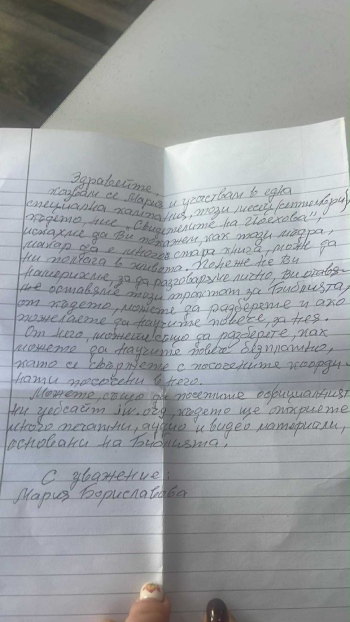 Здравейте,
казвам се Мария и участвам в една
специална кампания, този месец (септември),
където, ние „Свидетелите на Йехова",
искахме да Ви покажем, как тази мъдра,
макар да е много стара книга, може да
ни помога в живота. Понеже не Ви
намерихме, за да разговаряме лично, Ви
ме оставяме този трактат за Библията,
от където, можете да разберете и ако
пожелаете да научите повече за нея.
От него, можеш също да разберете, как
можете да научите повече безплатно,
като се свържете с посочените коорди-
нати посочени в него.
Можете също да посетите официалният
ни уебсайт jw.org, където ще откриете
много печатни, аудио и видео материали,
основани на Библията.
С уважение:
Мария Бориславова